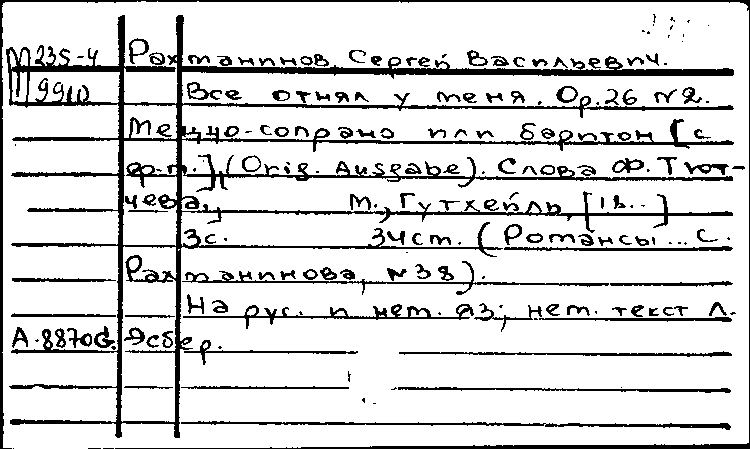 М 235-4 Рахманинов, Сергей Васильевич.
9910 Все отнял у меня. Op. 26 № 2.
Меццо-сопрано или баритон [с
ф-п.], (Orig. Ausgabe). Слова Ф. Тют-
чева., М., Гутхейль, [18..]
3с. 34см. (Романсы ... С.
Рахманинова, № 38).
На рус. и нем. яз; нем. текст Л.
А.8870G. Эсбер.